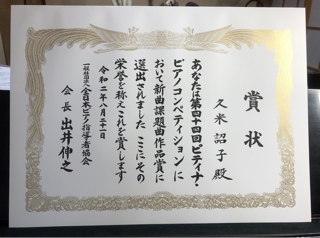 賞状
久米詔子殿
あなたは第四十四回ピティナ・
ピアノコンペティションに
おいて新曲課題曲作品賞に
選出されました ここにその
栄誉を称えこれを賞します
令和二年八月二十一日
一般社団法人全日本ピアノ指導者協会
会長 出井伸之